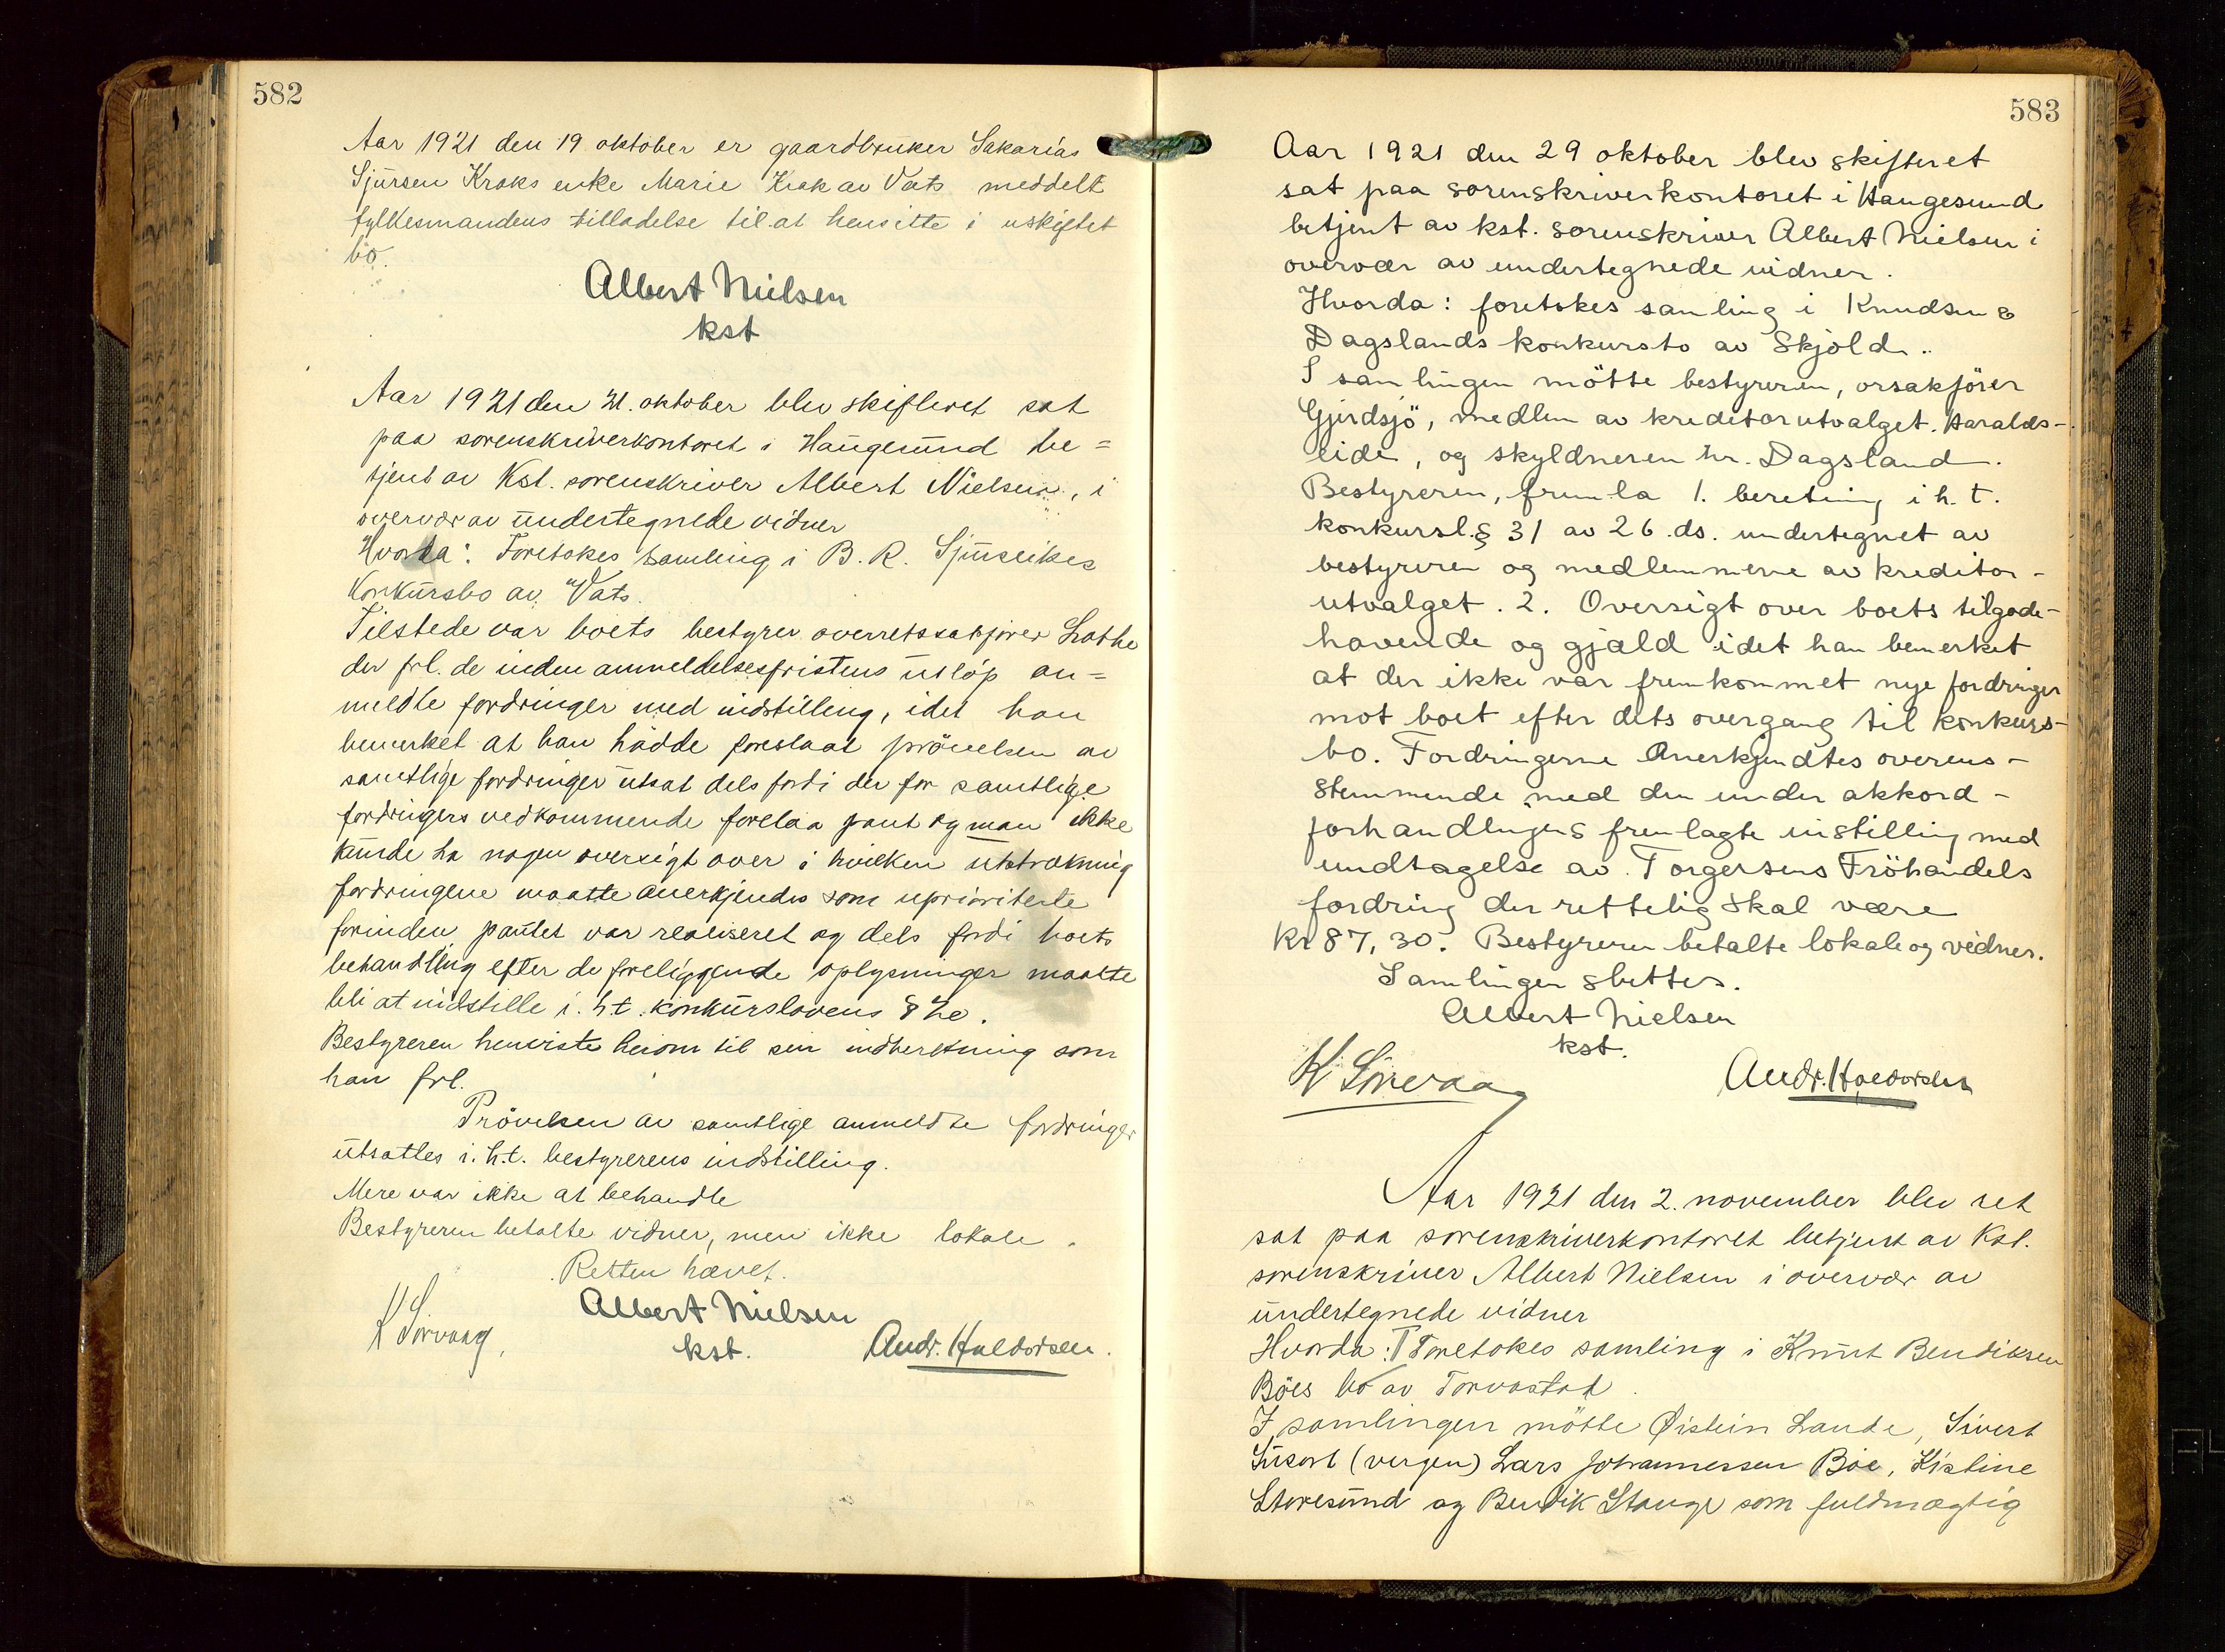 582
Aar 1921 den 19 oktober er gaardbruker Sakarias
Sjursen Kraks enke Marie Krak av Vats meddelt
fylkesmandens tilladelse til at hensitte i uskiftet
bo.
Albert Nielsen
kst
Aar 1921 den 21. oktober blev skifteret sat
paa sorenskriverkontoret i Haugesund be=
tjent av Kst. sorenskriver Albert Nielsen, i
overvær av undertegnede vidner
Hvorda: Foretokes samling i B. R.
Konkursbo av Vats.
Tilstede var boets bestyrer overretssakfører Lothe
der frl. de inden anmeldelsesfristens utløp an=
meldte fordringer med indstilling, idet han
bemerket at han hadde foreslaat prövelsen av
samtlige fordringer utsat dels fordi der for samtlige
fordringers vedkommende forelaa pant og man ikke
kunde ha nogen oversigt over i hvilken utstrækning
fordringene maatte anerkjendes som uprioriterte
forinden pantet var realiseret og dels fordi boets
behandling efter de foreliggende oplysninger maatte
bli at indstille i. h.t. konkurslovens §
Bestyreren henviste herom til sin indberetning som
han frl.
Prövelsen av samtlige anmeldte fordringer
utsattes i. h.t. bestyrerens indstilling.
Mere var ikke at behandle
Bestyreren betalte vidner, men ikke lokale.
Retten hævet.
Albert Nielsen
kst.
K Sørvaag,
Andr. Haldorsen.
583
Aar 1921 den 29 oktober blev skifteret
sat paa sorenskriverkontoret i Haugesund
betjent av kst. sorenskriver Albert Nielsen i
overvær av undertegnede vidner.
Hvorda: foretokes samling i Knudsen &
Dagslands konkursbo av Skjold.
I samlingen mötte bestyreren, orsakförer
Gjerdsjö, medlem av kreditorutvalget. Haralds-
eide, og skyldneren hr. Dagsland.
Bestyreren, fremla 1. beretning i h. t.
konkursl. § 31 av 26. ds. undertegnet av
bestyreren og medlemmene av kreditor-
utvalget. 2. Oversigt over boets tilgode-
havende og gjæld idet han bemerket
at der ikke var fremkommet nye fordringer
mot boet efter dets overgang til konkurs-
bo. Fordringerne anerkjendtes overens-
stemmende med den under akkord-
forhandlingens fremlagte instilling med
undtagelse av Torgersens Fröhandels
fordring der rettelig skal være
kr 87,30. Bestyreren betalte lokale og vidner.
Samlingen sluttes.
Albert Nielsen
kst.
K Sørvaag
Andr. Haldorsen
Aar 1921 den 2. november blev ret
sat paa sorenskriverkontoret betjent av Kst.
sorenskriver Albert Nielsen i overvær av
undertegnede vidner
Hvorda: Foretokes samling i Knut Bendiksen
Böes bo av Torvastad.
I samlingen mötte Øistein Lande, Sivert
(vergen) Lars Johannessen Böe, Kistine
Storesund og Bendik Stange som fuldmægtig